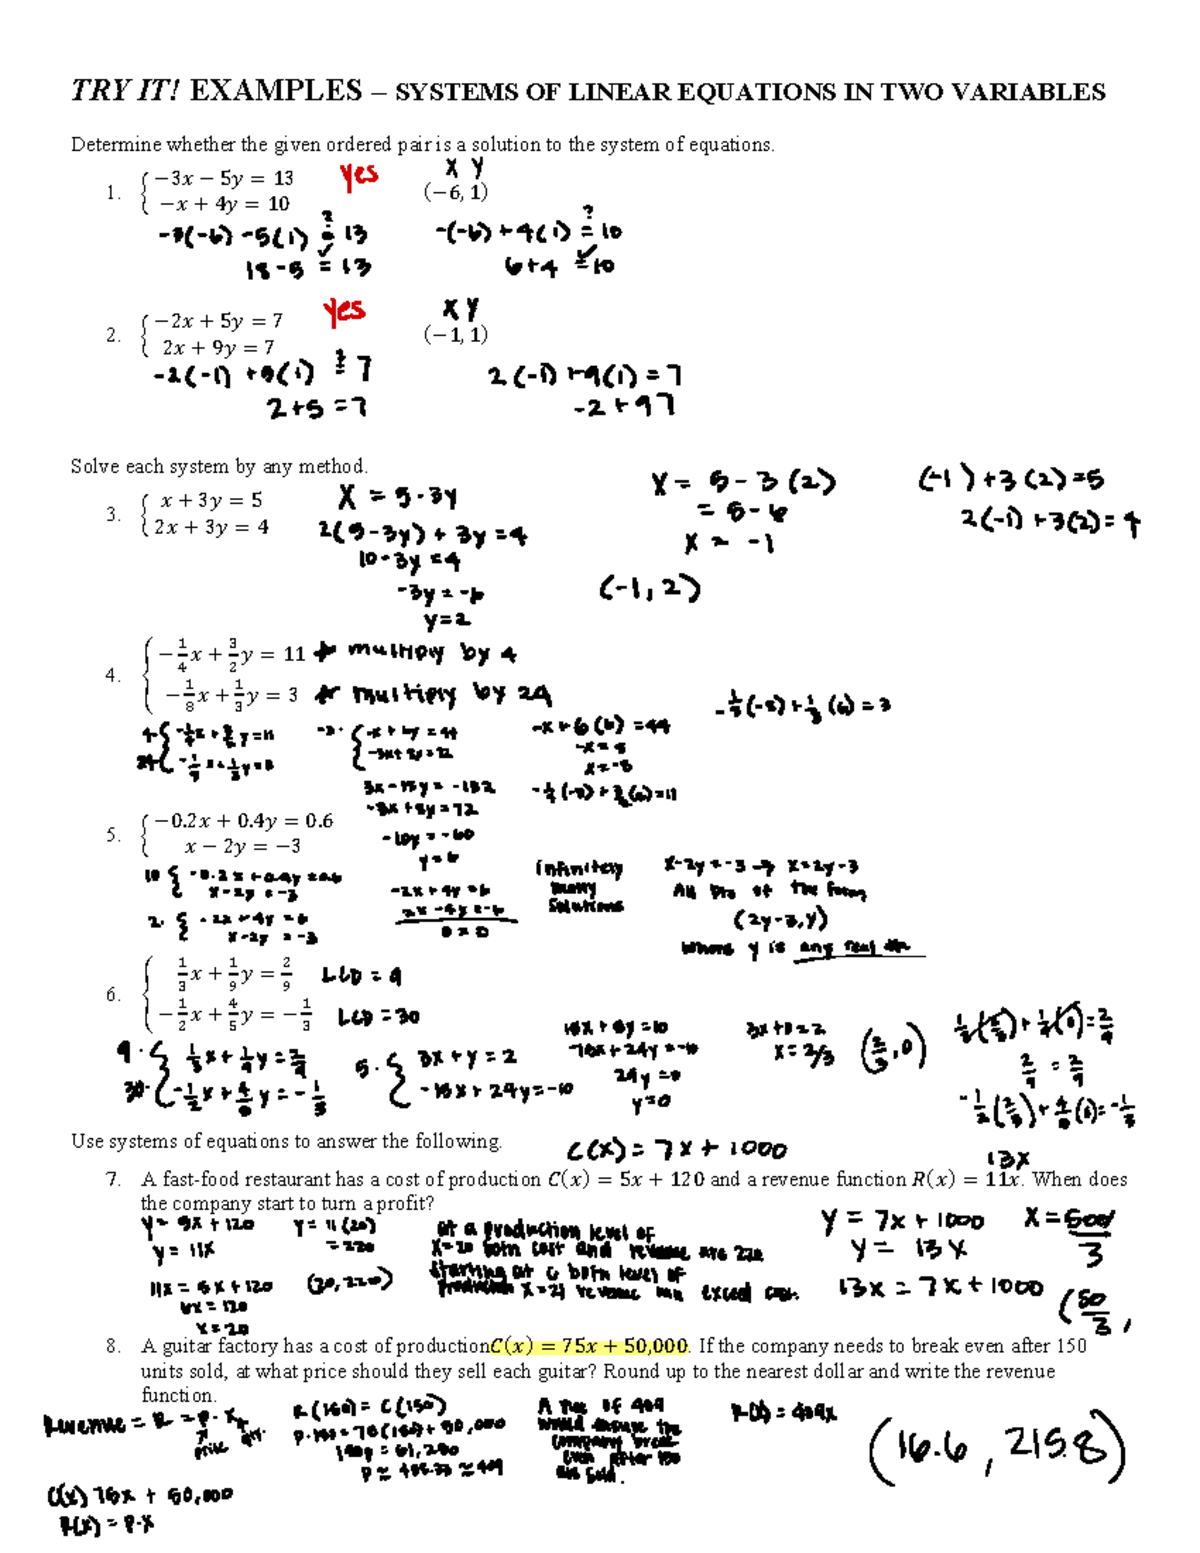 TRY IT! EXAMPLES – SYSTEMS OF LINEAR EQUATIONS IN TWO VARIABLES
Determine whether the given ordered pair is a solution to the system of equations.
1. { −3x − 5y = 13
−x + 4y = 10
yes
x y
(−6, 1)
-3(-6) -5(1) ≟ 13
18 - 5 = 13
-(-6) + 4(1) ≟ 10
6+4 = 10
2. { −2x + 5y = 7
2x + 9y = 7
yes
x y
(−1, 1)
-2(-1) +5(1) ≟ 7
2+5 =7
2(-1) +9(1) = 7
-2+97
Solve each system by any method.
3. { x + 3y = 5
2x + 3y = 4
x = 5-3y
2(5-3y) + 3y =4
10-3y =4
-3y = -6
y=2
x = 5-3(2)
= 5-6
x = -1
(-1, 2)
(-1)+3(2)=5
2(-1)+3(2)=4
4. { −1/4x + 3/2y = 11
−1/8x + 1/3y = 3
multiply by 4
multiply by 24
-x+6(6)=44
-x=8
x=-8
-1/8(-8)+1/3(6)=3
3x-18y=-132
-3x+8y=72
-10y=-60
y=6
-1/4(-8)+3/2(6)=11
5. { −0.2x + 0.4y = 0.6
x − 2y = −3
-2x+4y=6
2x-4y=-6
0=0
infinitely
many
solutions
x-2y=-3 → x=2y-3
All of the form
(2y-3,y)
where y is any real
6. { 1/3x + 1/9y = 2/9
−1/2x + 4/5y = −1/3
LCD = 9
LCD =30
9· { 1/3x+1/9y=2/9
30· { -1/2x+4/5y=-1/3
5· { 3x+y=2
-15x+24y=-10
15x+5y=10
-15x+24y=-10
y=0
3x+0=2
x=2/3
(2/3,0)
1/3(2/3)+1/9(0)=2/9
2/9 = 2/9
-1/2(2/3)+4/5(0)=-1/3
Use systems of equations to answer the following.
C(x) = 7x + 1000
13x
7. A fast-food restaurant has a cost of production C(x) = 5x + 120 and a revenue function R(x) = 11x. When does
the company start to turn a profit?
y= 5x+120
y = 11x
11x = 5x+120
6x=120
x=20
y= 11(20)
=220
(20,220)
at a production level of
x=20 both cost and revenue are 220
starting at both level of
production x=21 revenue exceed cost.
y = 7x+1000
y= 13x
13x = 7x+1000
x=500/3
(50/3,
8. A guitar factory has a cost of productionC(x) = 75x + 50,000. If the company needs to break even after 150
units sold, at what price should they sell each guitar? Round up to the nearest dollar and write the revenue
function.
Revenue = R = p·x
price
C(x) 75x + 50,000
R(x) = p·x
R(150)= C(150)
p·150=75(150)+50,000
150p=61,250
p≈408.33≈409
A of 409
would the
company break
even after 150
sold.
R(x)=409x
(16.6, 215.8)